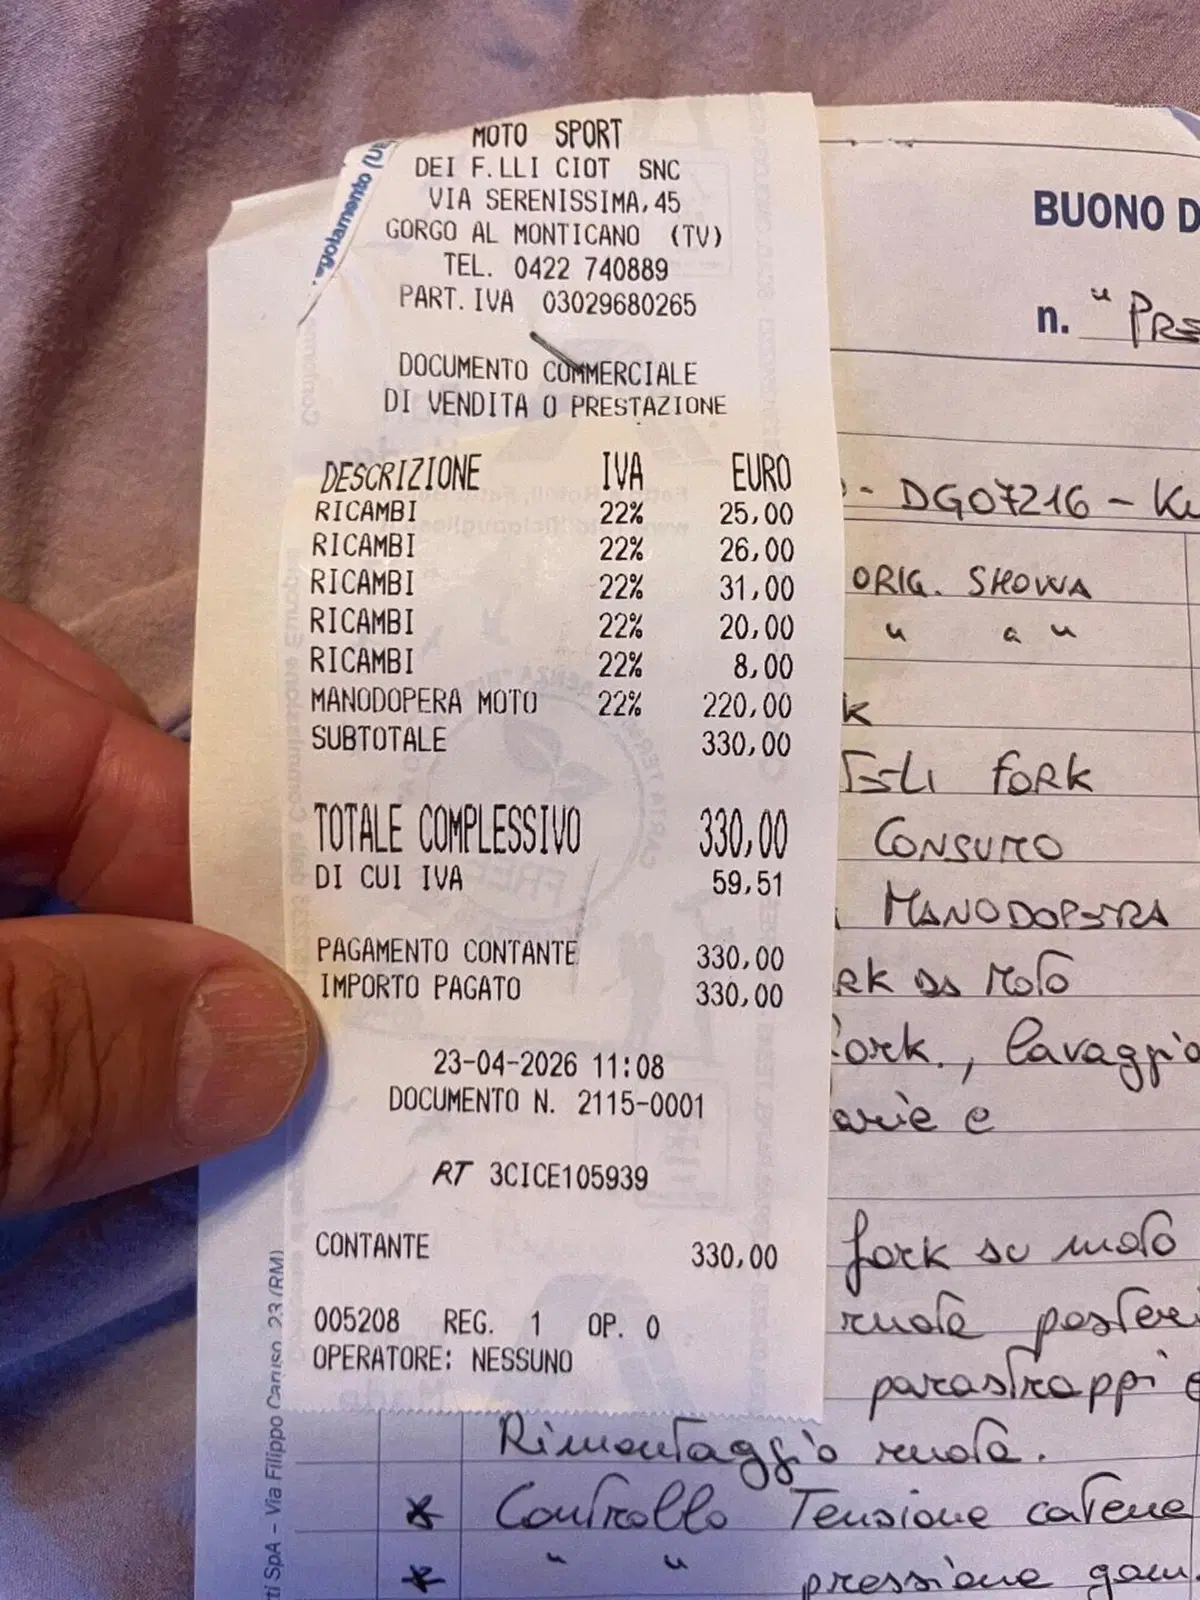 MOTO SPORT
DEI F.LLI CIOT SNC
VIA SERENISSIMA,45
GORGO AL MONTICANO (TV)
TEL. 0422 740889
PART.IVA 03029680265
DOCUMENTO COMMERCIALE
DI VENDITA O PRESTAZIONE
DESCRIZIONE IVA EURO
RICAMBI 22% 25,00
RICAMBI 22% 26,00
RICAMBI 22% 31,00
RICAMBI 22% 20,00
RICAMBI 22% 8,00
MANODOPERA MOTO 22% 220,00
SUBTOTALE 330,00
TOTALE COMPLESSIVO 330,00
DI CUI IVA 59,51
PAGAMENTO CONTANTE 330,00
IMPORTO PAGATO 330,00
23-04-2026 11:08
DOCUMENTO N. 2115-0001
RT 3CICE105939
CONTANTE 330,00
005208 REG. 1 OP. 0
OPERATORE: NESSUNO
BUONO D
n. "PRE
- DG07216 - K
ORIG. SHOWA
" " "
k
FORK
CONSUMO
MANODOPERA
RK DA MOTO
ork., lavaggio
arie e
fork su moto
ruota poster
parastrappi e
Rimontaggio ruota.
* Controllo Tensione catena
* " " pressione gom.
golamento (U
SpA - Via Filippo Caruso, 23 (RM)